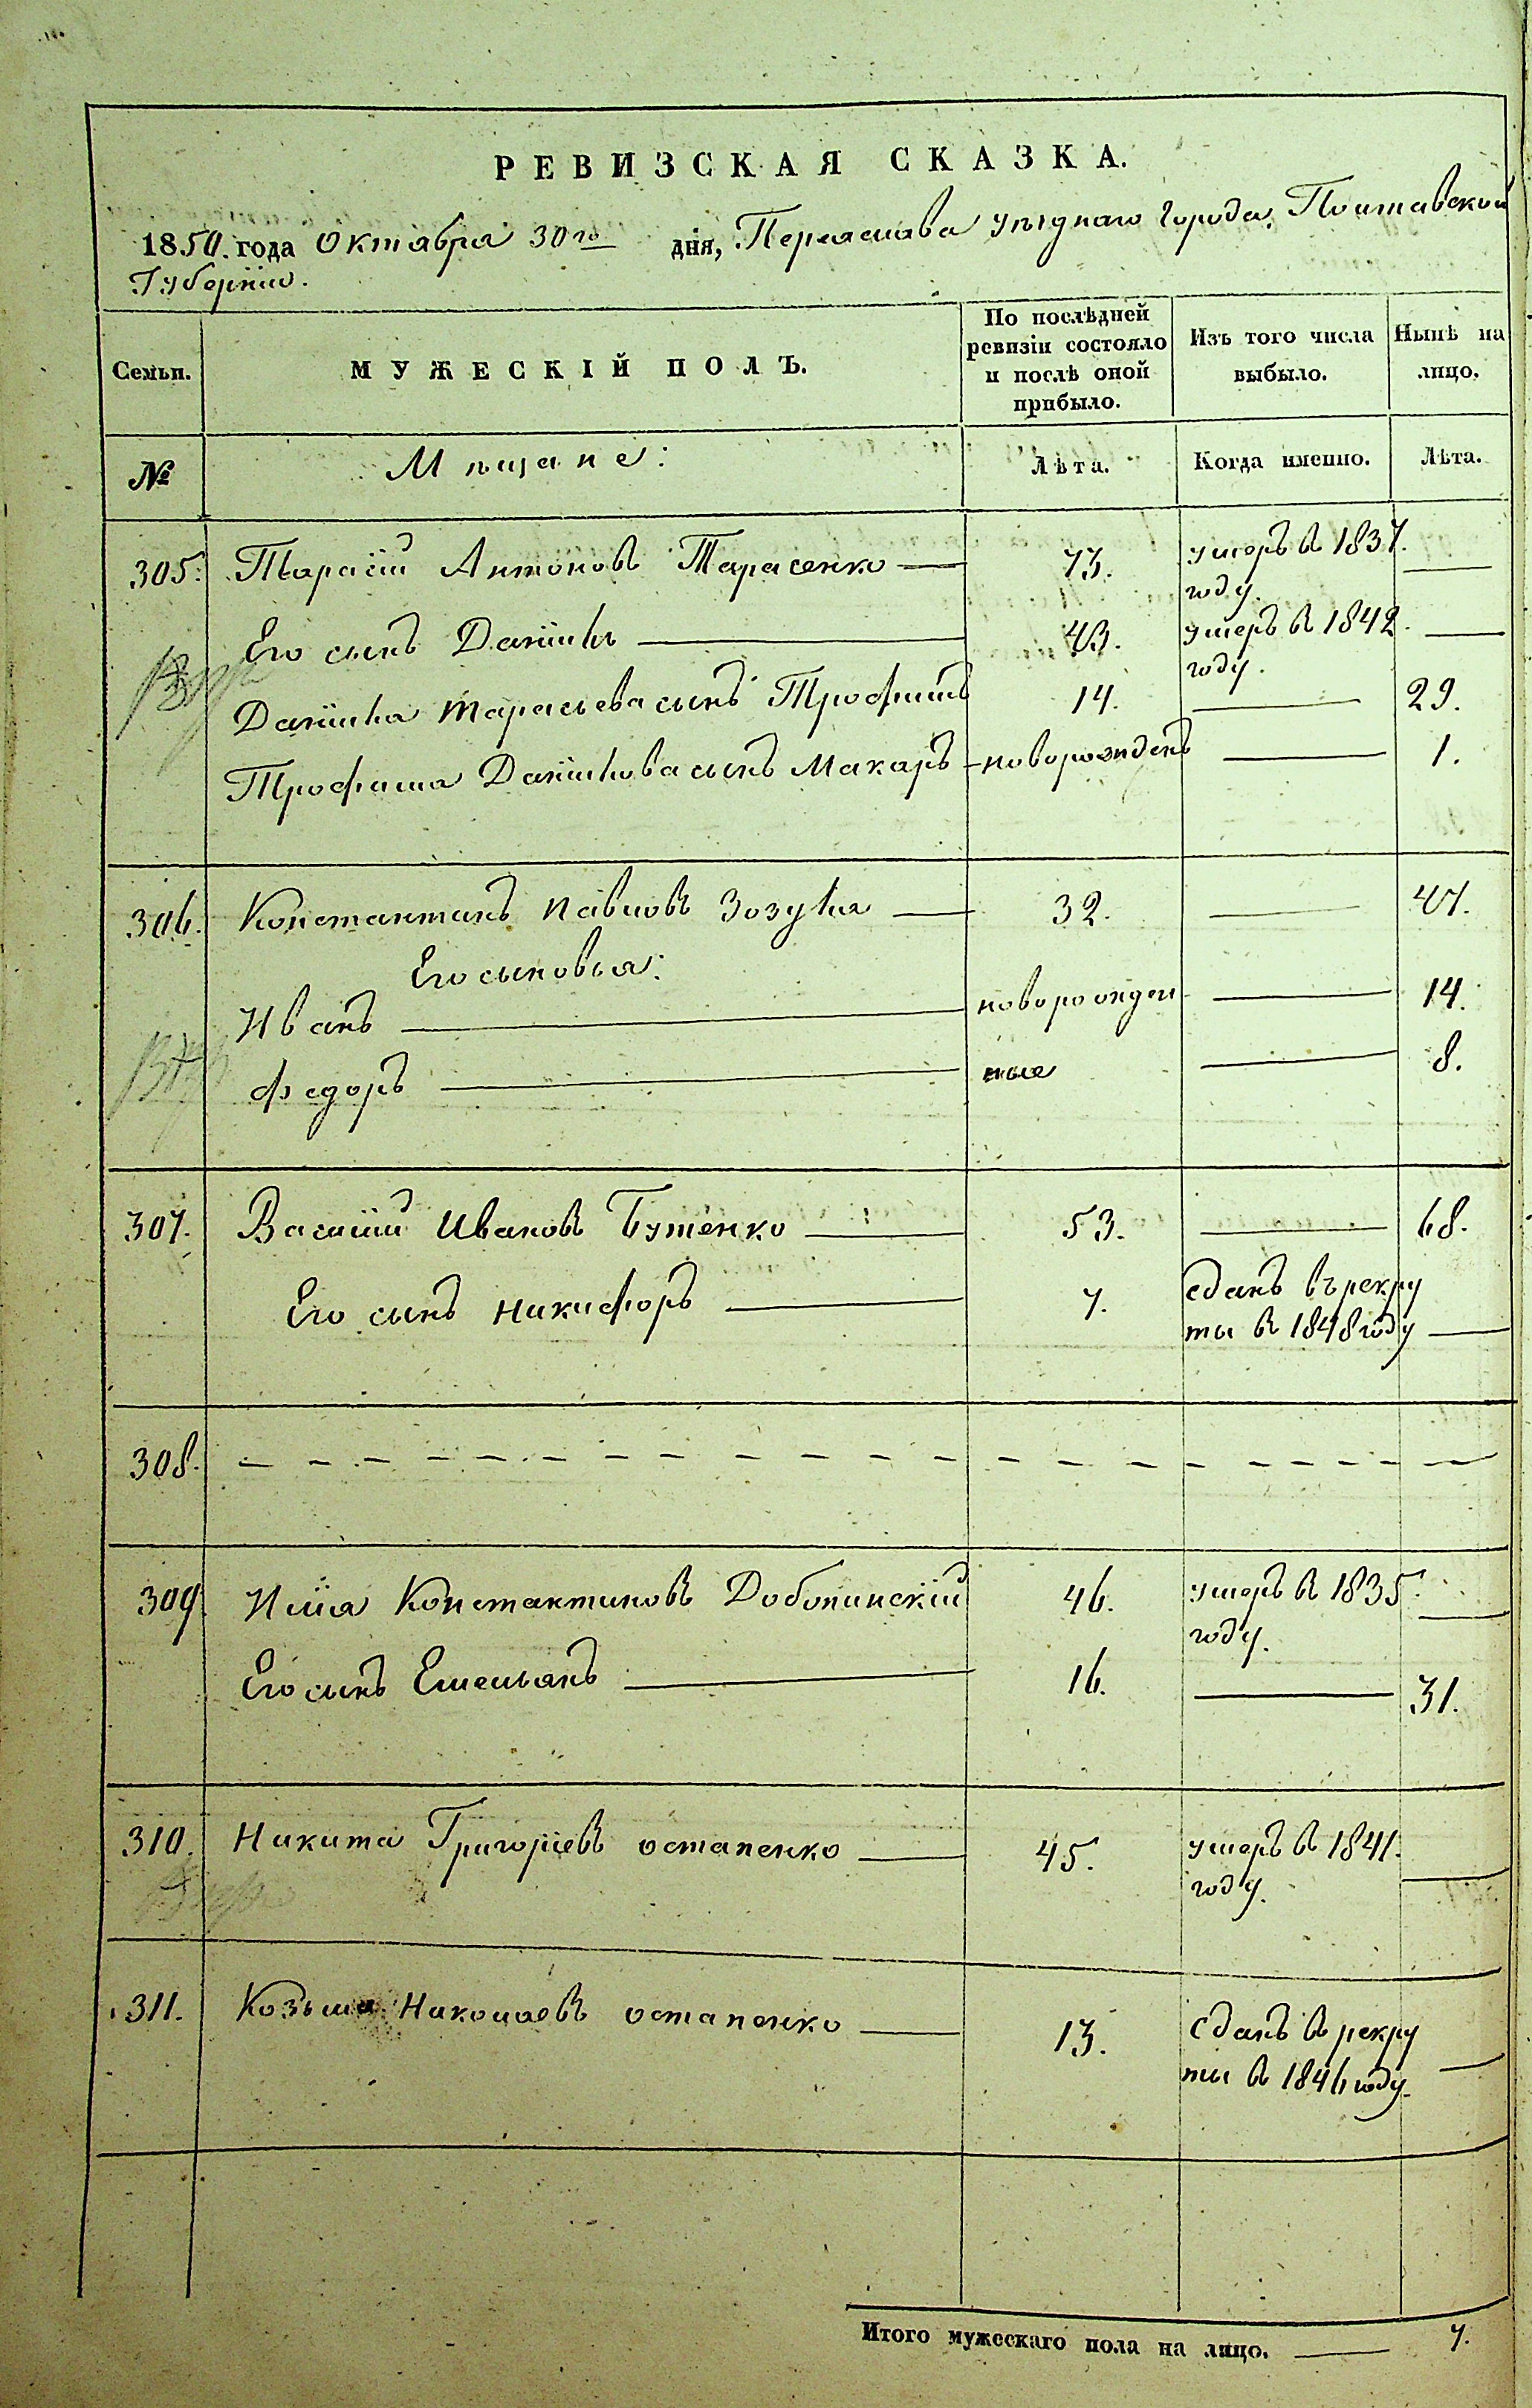 РЕВИЗСКАЯ СКАЗКА.
1850. года Октября 30го дня, Переяслава уѣзднаго города, Полтавской
Губерніи.
Семьи. МУЖЕСКІЙ ПОЛЪ. По послѣдней ревизіи состояло и послѣ оной прибыло. Изъ того числа выбыло. Нынѣ на лицо.
№ Мѣщане: Лѣта. Когда именно. Лѣта.
305. Тарасій Антоновъ Тарасенко — 73. умеръ въ 1837. году. —
Его сынъ Даніилъ — 43. умеръ въ 1842. году. —
Даніила Тарасьева сынъ Трофимъ 14. — 29.
Трофима Даніилова сынъ Макаръ — новорожденъ — 1.
306. Константинъ Павловъ Зозуля — 32. — 47.
Его сыновья:
Иванъ — новорожден — 14.
Федоръ — ные — 8.
307. Василій Ивановъ Бутенко — 53. — 68.
Его сынъ Никифоръ — 7. сданъ въ рекру
ты въ 1848 году —
308. — — — — — — — — — — — — — — — — — — — —
309. Илія Константиновъ 46. умеръ въ 1835. году. —
Его сынъ Емельянъ — 16. — 31.
310. Никита Григоріевъ Остапенко — 45. умеръ въ 1841. году. —
311. Козьма Николаевъ Остапенко — 13. Сданъ въ рекру
ты въ 1846 году. —
Итого мужескаго пола на лицо. — 7.